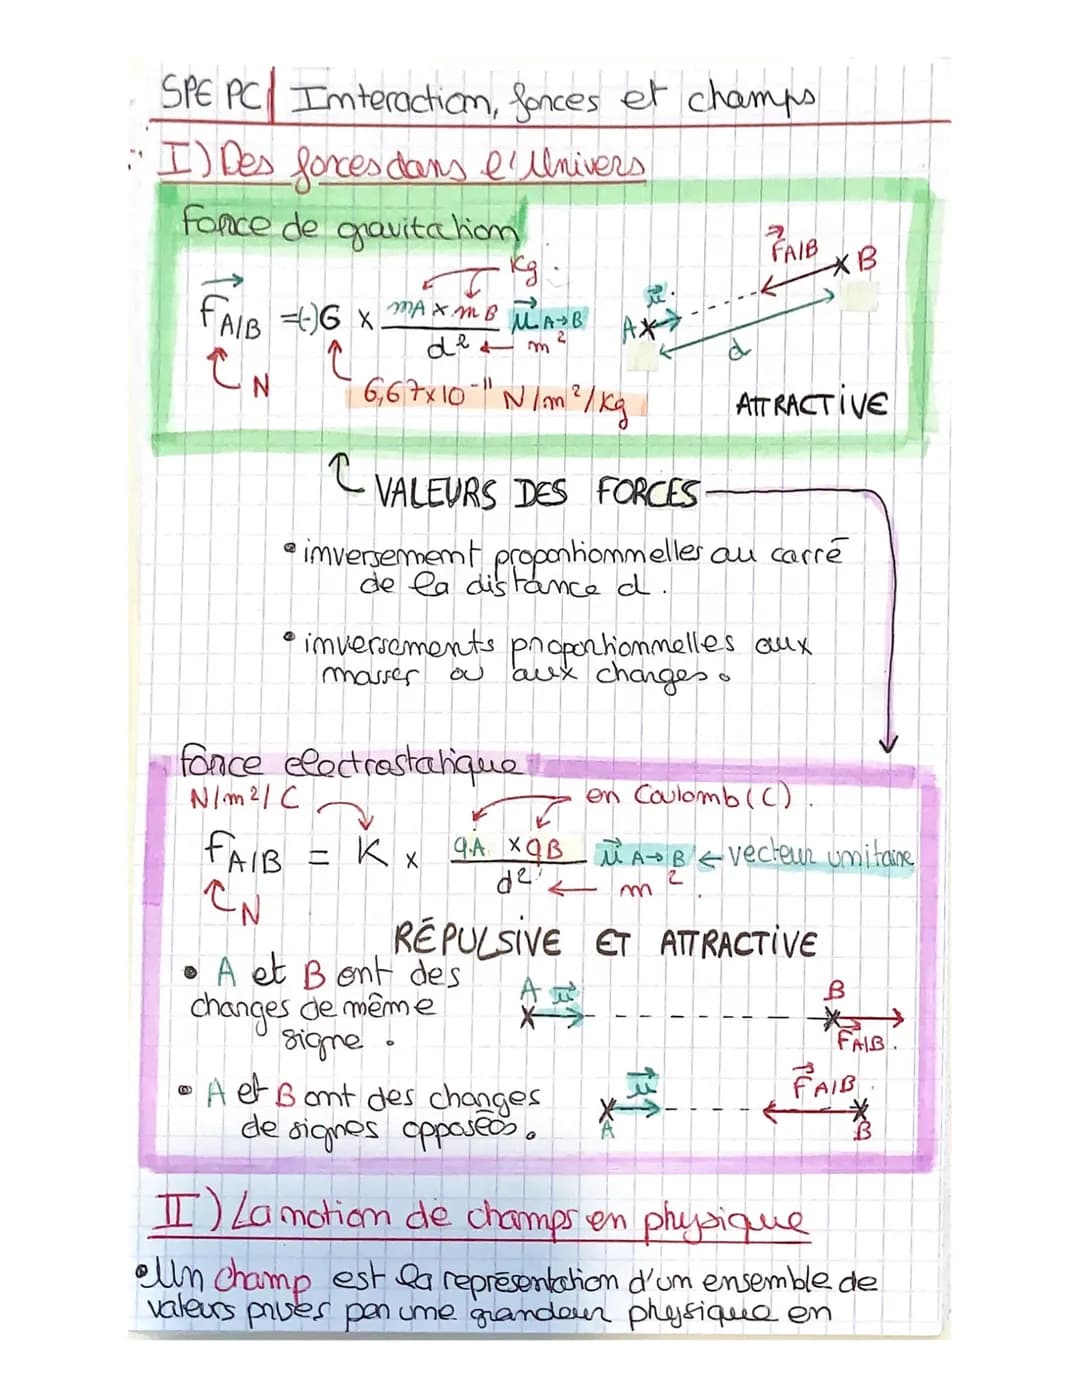 SPE PC| Interaction, forces et champs
I) Des forces dans l'Univers
Force de gravitation
Kg
F A/B =(-)G x mA x mB / d² u A→B
m²
N
6,67x10⁻¹¹ N/m²/kg
F A/B
B
u
A
d
ATTRACTIVE
VALEURS DES FORCES
• inversement proportionnelles au carré
de la distance d.
• inversements proportionnelles aux
masses ou aux charges.
Force electrostatique
N/m²/C
en Coulomb (C).
F A/B = K x qA x qB / d² u A→B ← vecteur unitaire
m²
N
RÉPULSIVE ET ATTRACTIVE
• A et B ont des
charges de même
signe.
A u
B
F A/B.
• A et B ont des charges
de signes opposées.
u
A
F A/B
B
II) La notion de champs en physique
• Un champ est la représentation d'un ensemble de
valeurs prises par une grandeur physique en